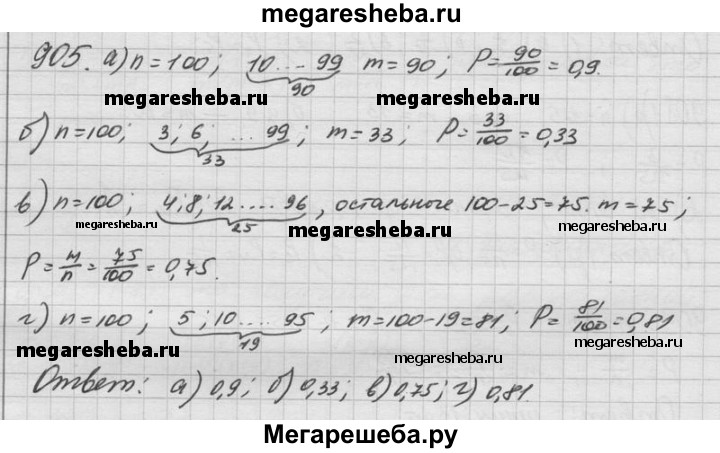 megaresheba.ru
905. а) n = 100; 10 ... 99 m = 90; P = 90/100 = 0,9.
90
megaresheba.ru megaresheba.ru
б) n = 100; 3; 6; ... 99; m = 33; P = 33/100 = 0,33
33
в) n = 100; 4; 8; 12 .... 96, остальные 100 - 25 = 75. m = 75;
25
megaresheba.ru megaresheba.ru megaresheba.ru
P = m/n = 75/100 = 0,75.
г) n = 100; 5; 10 .... 95; m = 100 - 19 = 81; P = 81/100 = 0,81
19
megaresheba.ru megaresheba.ru megaresheba.ru
Ответ: а) 0,9; б) 0,33; в) 0,75; г) 0,81.
Мегарешеба.ру